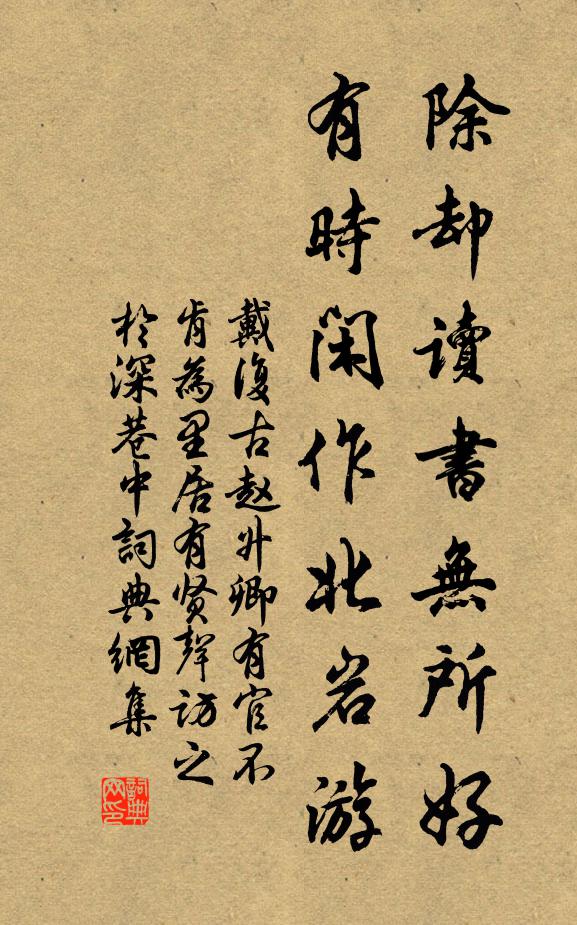 除却讀書無所好
有時閑作北岩游
戴復古赵升卿有官不
肯為里居有贤聲訪之
於深巷中詞典網集
詞典网印